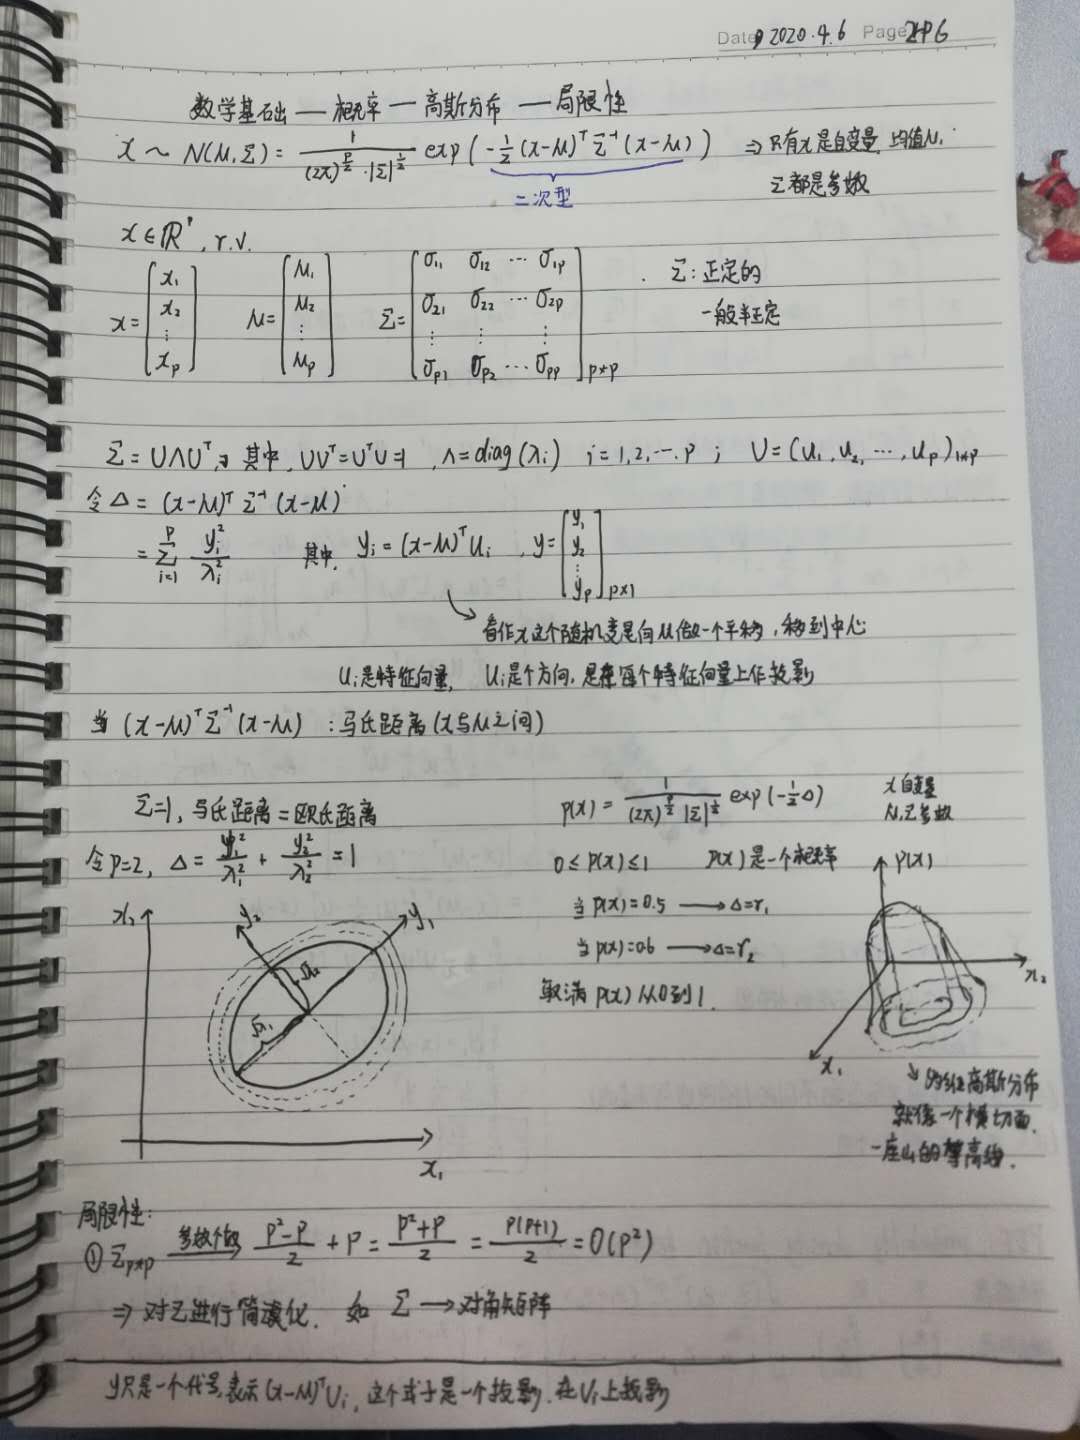 Date 2020.4.6 Page
数学基础 — 概率 — 高斯分布 — 局限性
x ~ N(μ,Σ) = 1/((2π)^(p/2)·|Σ|^(1/2)) exp(-1/2 (x-μ)^T Σ^-1 (x-μ)) ⇒ 只有x是自变量,均值μ,
二次型 Σ都是参数
x∈R^p, r.v.
x = [x1 x2 ⋮ xp] μ = [μ1 μ2 ⋮ μp] Σ = [σ11 σ12 ⋯ σ1p σ21 σ22 ⋯ σ2p ⋮ ⋮ ⋮ σp1 σp2 ⋯ σpp]p*p . Σ:正定的
一般半正定
Σ = UΛU^T, 其中, UU^T = U^TU = I, Λ = diag(λi) i=1,2,…,p ; U = (u1, u2, ⋯, up)1*p
令Δ = (x-μ)^T Σ^-1 (x-μ)
= Σ_{i=1}^{p} yi^2/λi^2 其中, yi = (x-μ)^T Ui , y = [y1 y2 ⋮ yp]p×1
看作x这个随机变量向μ做一个平移,移到中心
Ui是特征向量, Ui是个方向,是在每个特征向量上作投影
当 (x-μ)^T Σ^-1 (x-μ) :马氏距离(x与μ之间)
Σ=I,马氏距离=欧氏距离 p(x) = 1/((2π)^(p/2) |Σ|^(1/2)) exp(-1/2 Δ) x自变量
μ,Σ参数
令p=2, Δ = y1^2/λ1^2 + y2^2/λ2^2 = 1 0≤p(x)≤1 p(x)是一个概率 p(x)
x2 y2 y1 当p(x)=0.5 → Δ=r1
当p(x)=0.6 → Δ=r2 x2
√λ1 √λ2 取满p(x)从0到1. x1
高斯分布
就像一个横切面.
x1 一座山的等高线.
局限性:
① Σp*p 参数个数 (p^2-p)/2 + p = (p^2+p)/2 = p(p+1)/2 = O(p^2)
⇒ 对Σ进行简化. 如 Σ → 对角矩阵
y只是一个代号,表示(x-μ)^T Ui, 这个式子是一个投影.在Ui上投影